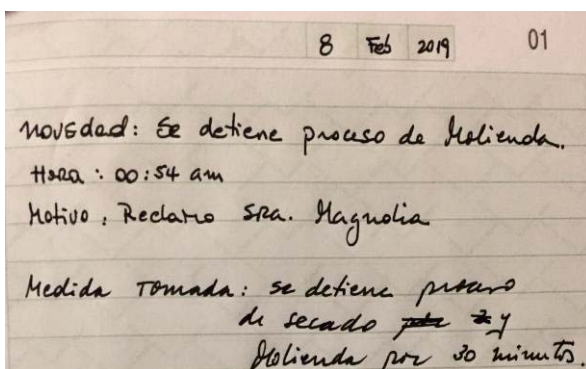 8 Feb 2019 01
Novedad: Se detiene proceso de Molienda.
Hora: 00:54 am
Motivo: Reclamo Sra. Magnolia
Medida Tomada: se detiene proceso
de secado y
Molienda por 30 minutos.